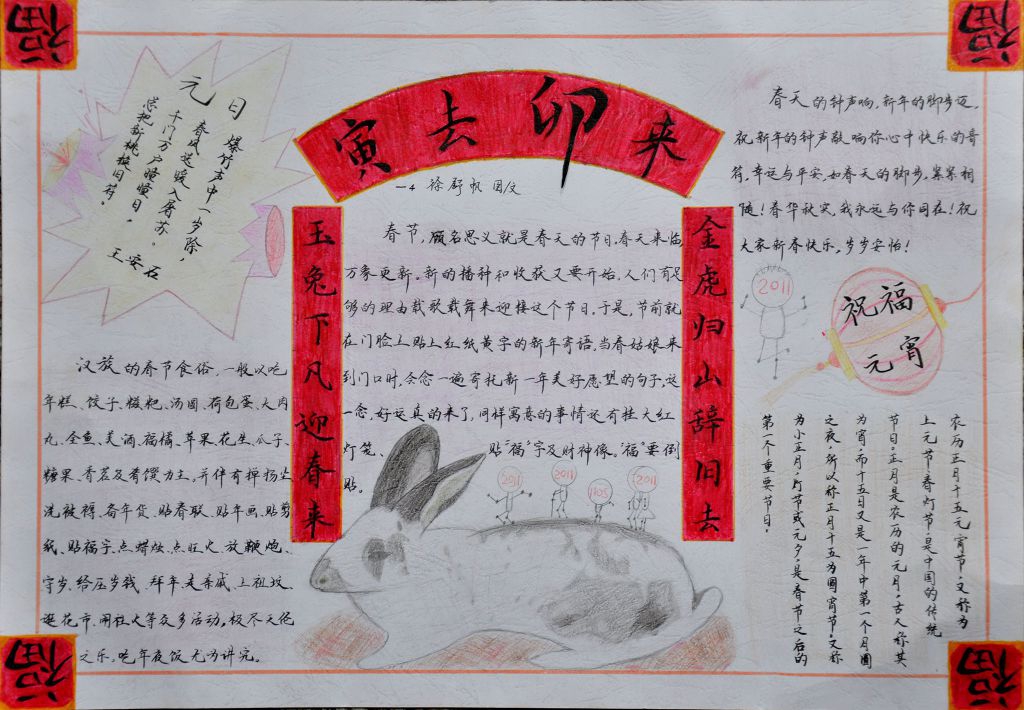 福
福
元日
爆竹声中一岁除，
春风送暖入屠苏。
千门万户曈曈日，
总把新桃换旧符。
王安石
寅去卯来
一4 徐舒帆 图/文
玉兔下凡迎春来
金虎归山辞旧去
春节，顾名思义就是春天的节日。春天来临
万象更新。新的播种和收获又要开始。人们有足
够的理由载歌载舞来迎接这个节日。于是，节前就
在门脸上贴上红纸黄字的新年寄语。当春姑娘来
到门口时，会念一遍寄托新一年美好愿望的句子，这
一念，好运真的来了。同样寓意的事情还有挂大红
灯笼、贴“福”字及财神像。“福”要倒
贴。
春天的钟声响，新年的脚步迈，
祝新年的钟声敲响你心中快乐的音
符，幸运与平安，如春天的脚步，紧紧相
随！春华秋实，我永远与你同在！祝
大家新春快乐，岁岁安怡！
2011
祝福
元宵
汉族的春节食俗，一般以吃
年糕、饺子、糍粑、汤圆、荷包蛋、大肉
丸、全鱼、美酒、福橘、苹果、花生、瓜子、
糖果、香茗及肴馔为主，并伴有掸扬尘
洗被褥、备年货、贴春联、贴年画、贴剪
纸、贴福字、点蜡烛、点旺火、放鞭炮、
守岁、给压岁钱、拜年、走亲戚、上祖坟、
逛花市、闹社火等众多活动，极尽天伦
之乐，吃年夜饭尤为讲究。
农历正月十五元宵节，又称为
上元节，春灯节，是中国的传统
节日。正月是农历的元月，古人称其
为宵，而十五日又是一年中第一个月圆
之夜，所以称正月十五为圆宵节。又称
为小正月，灯节或元夕，是春节之后的
第一个重要节日。
2011
2011
1105
2011
福
福